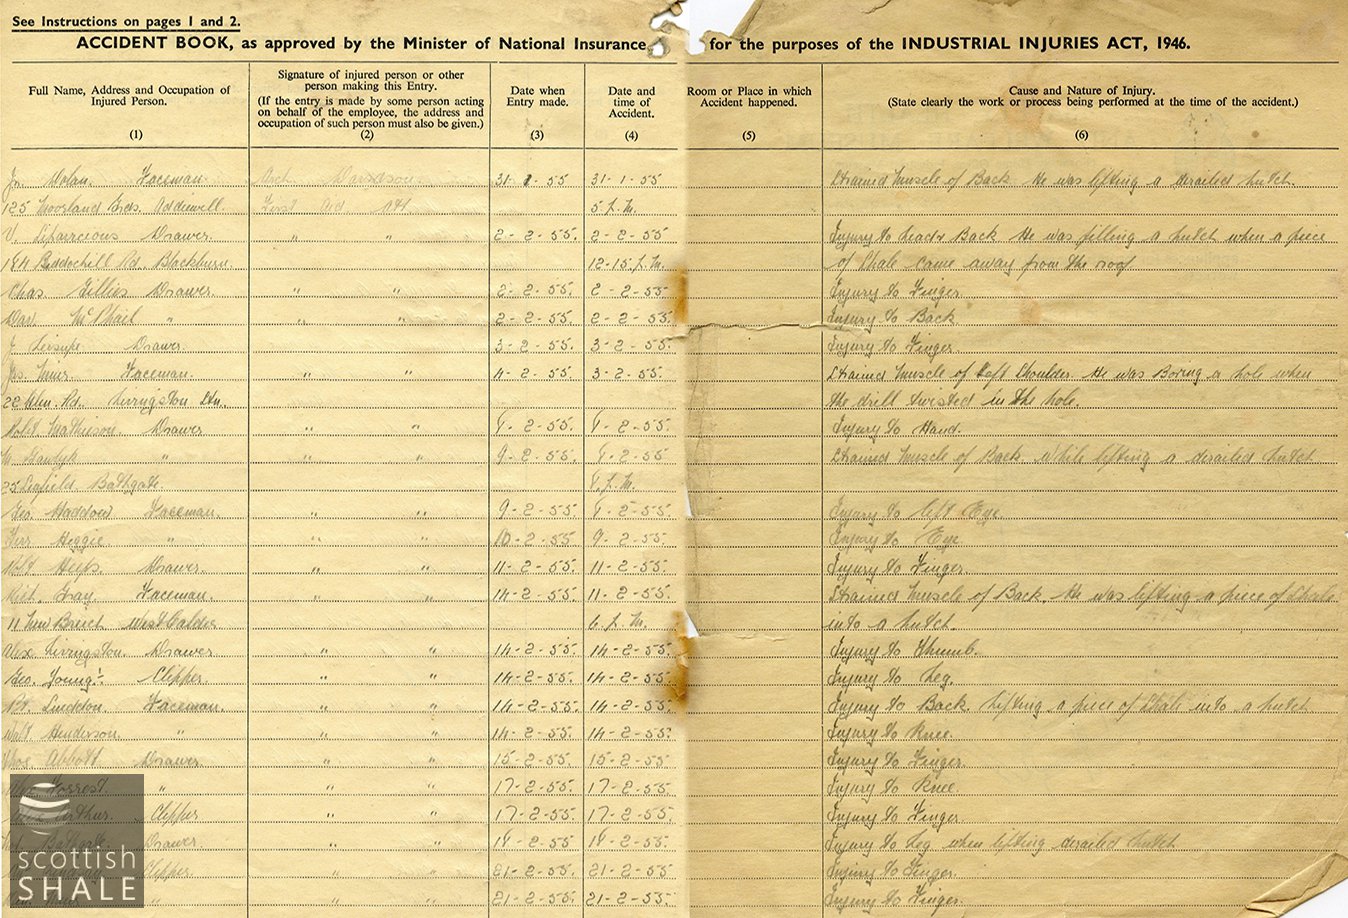 See Instructions on pages 1 and 2.
ACCIDENT BOOK, as approved by the Minister of National Insurance for the purposes of the INDUSTRIAL INJURIES ACT, 1946.
Full Name, Address and Occupation of Injured Person. (1)
Signature of injured person or other person making this Entry. (If the entry is made by some person acting on behalf of the employee, the address and occupation of such person must also be given.) (2)
Date when Entry made. (3)
Date and time of Accident. (4)
Room or Place in which Accident happened. (5)
Cause and Nature of Injury. (State clearly the work or process being performed at the time of the accident.) (6)
Jn. Dolan. Faceman. Arch. Davidson 31-1-55 31-1-55 Strained Muscle of Back He was lifting a derailed hutch.
125 Moorland Addiewell. First Aid Att. 5 p.m.
Drawer. " " 2-2-55. 2-2-55. Injury to head & Back He was filling a hutch when a piece
Rd. Blackburn. 12-15 p.m. of Shale came away from the roof
Chas. Gillies Drawer. " " 2-2-55. 2-2-55 Injury to Finger.
Dav. McPhail " " " 2-2-55. 2-2-55. Injury to Back
J. Drawer. 3-2-55. 3-2-55. Injury to Finger.
Jas. Muir. Faceman. " " 4-2-55. 3-2-55. Strained Muscle of Left Shoulder. He was Boring a hole when
22 Rd. Livingston Stn. the drill twisted in the hole.
Robt. Mathieson. Drawer " " 8-2-55. 8-2-55. Injury to Hand.
" " " 9-2-55. 8-2-55. Strained Muscle of Back while lifting a derailed hutch
25 Seafield Bathgate. 8 p.m.
Geo. Haddow Faceman. " " 9-2-55. 8-2-55. Injury to left Eye
Heggie " " " 10-2-55 9-2-55. Injury to Eye
Robt. Drawer. " " 11-2-55. 11-2-55. Injury to Finger.
Gray Faceman. " " 14-2-55. 11-2-55. Strained Muscle of Back. He was lifting a piece of Shale
11 New Breich West Calder 6 p.m. into a hutch.
Alex Livingston. Drawer " " 14-2-55. 14-2-55. Injury to Thumb.
Geo. Young. Clipper. " " 14-2-55. 14-2-55. Injury to Leg.
Faceman. " " 14-2-55. 14-2-55. Injury to Back. Lifting a piece of Shale into a hutch
Henderson. " " " 14-2-55. 14-2-55. Injury to Knee.
Thos. Abbott Drawer. " " 15-2-55. 15-2-55. Injury to Finger.
Forrest. " " " 17-2-55. 17-2-55. Injury to Knee.
Clipper " " 17-2-55. 17-2-55. Injury to Finger.
Drawer. " " 18-2-55 18-2-55. Injury to Leg when lifting derailed hutch
Clipper " " 21-2-55. 21-2-55. Injury to Finger.
" " " 21-2-55. 21-2-55. Injury to Finger.
scottish
SHALE